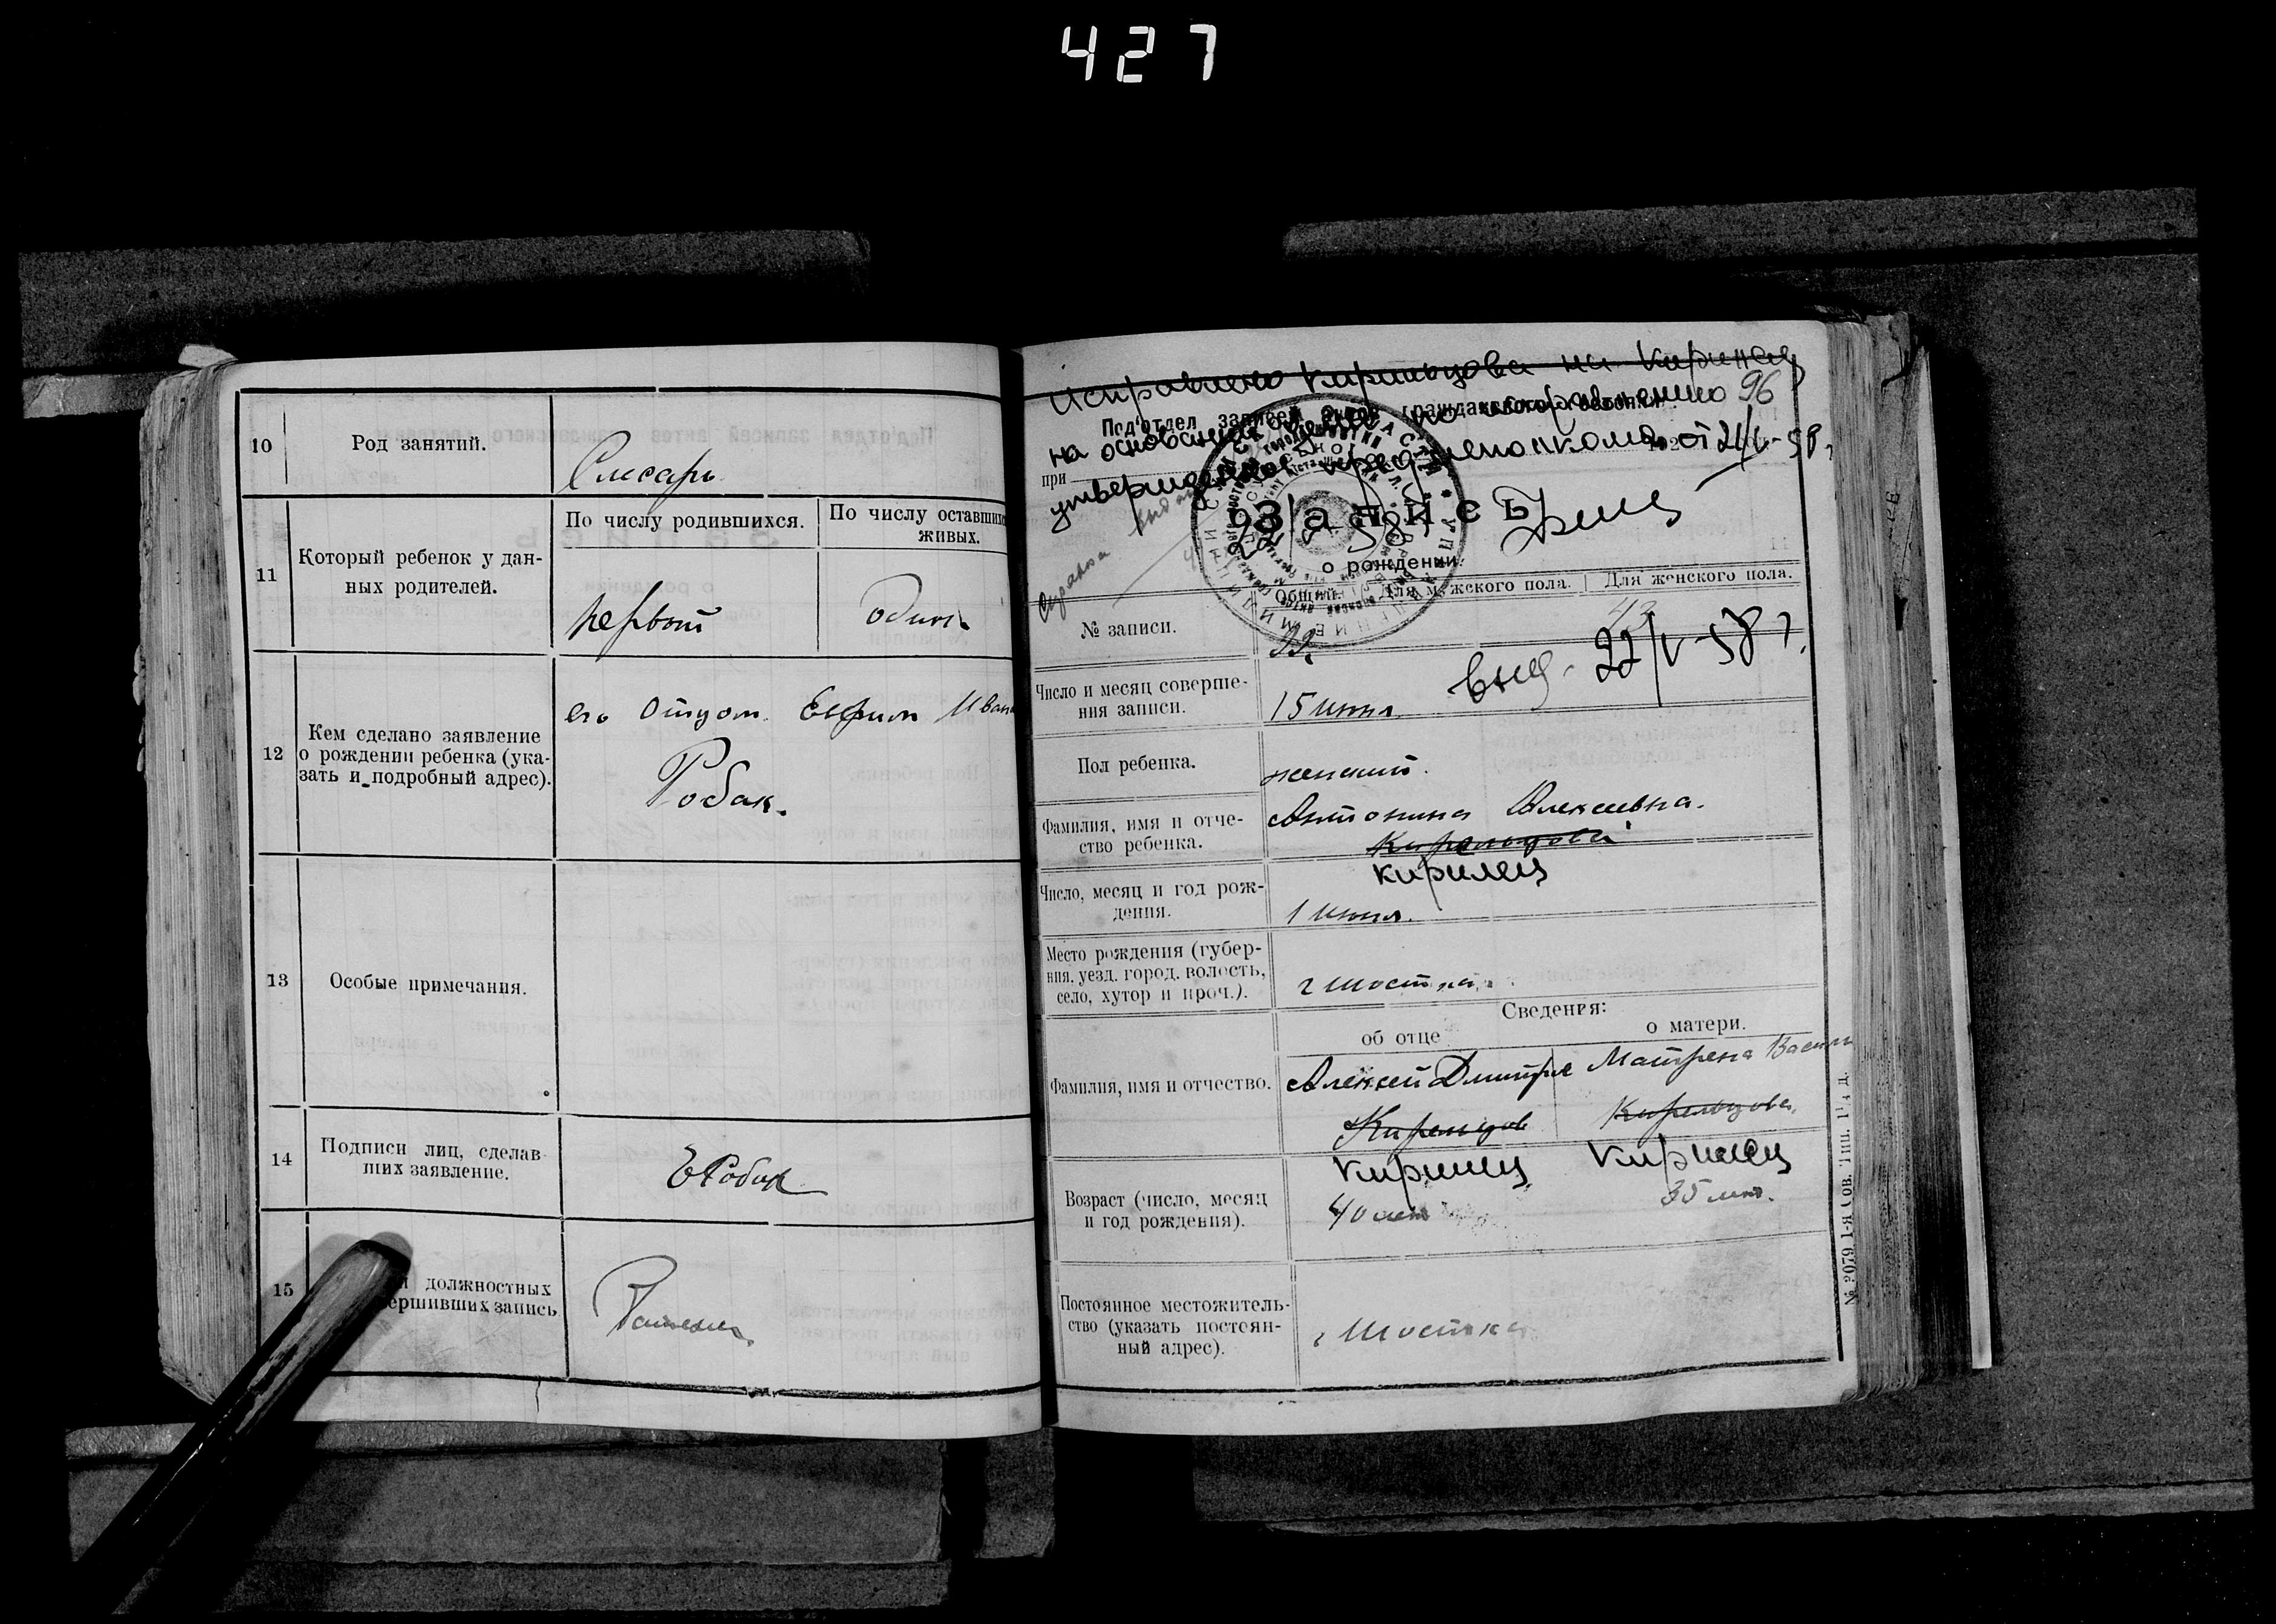 427
10
Род занятий.
Слесарь
11
Который ребенок у дан-
ных родителей.
По числу родившихся.
По числу оставшихся
живых.
первый
один.
12
Кем сделано заявление
о рождении ребенка (ука-
зать и подробный адрес).
его Отцом. Ефрим Иван
Робак.
13
Особые примечания.
14
Подписи лиц, сделав-
ших заявление.
ЕРобак
15
должностных
ершивших запись
исправлено Кирильцова на Кирилец
96
Под'отдел записей актов гражданского
на основании по исправлению
при
утвержденного от 21/V-58 г.
22/V 58
Запись
о рождении.
Общий.
Для мужского пола.
Для женского пола.
№ записи.
93.
43
выд. 22/V-58 г.
Число и месяц соверше-
ния записи.
15 июня.
Пол ребенка.
женский.
Фамилия, имя и отче-
ство ребенка.
Антонина Алексеевна.
Кирельцова
Кирилец
Число, месяц и год рож-
дения.
1 июня.
Место рождения (губер-
ния, уезд, город, волость,
село, хутор и проч.).
г Шостка
Сведения:
об отце
о матери.
Фамилия, имя и отчество.
Алексей Дмитрие
Матрена Васил
Кирельцов
Кирельцова.
Кирилец
Кирилец
Возраст (число, месяц
и год рождения).
40 лет
35 лет.
Постоянное местожитель-
ство (указать постоян-
ный адрес).
г Шостка